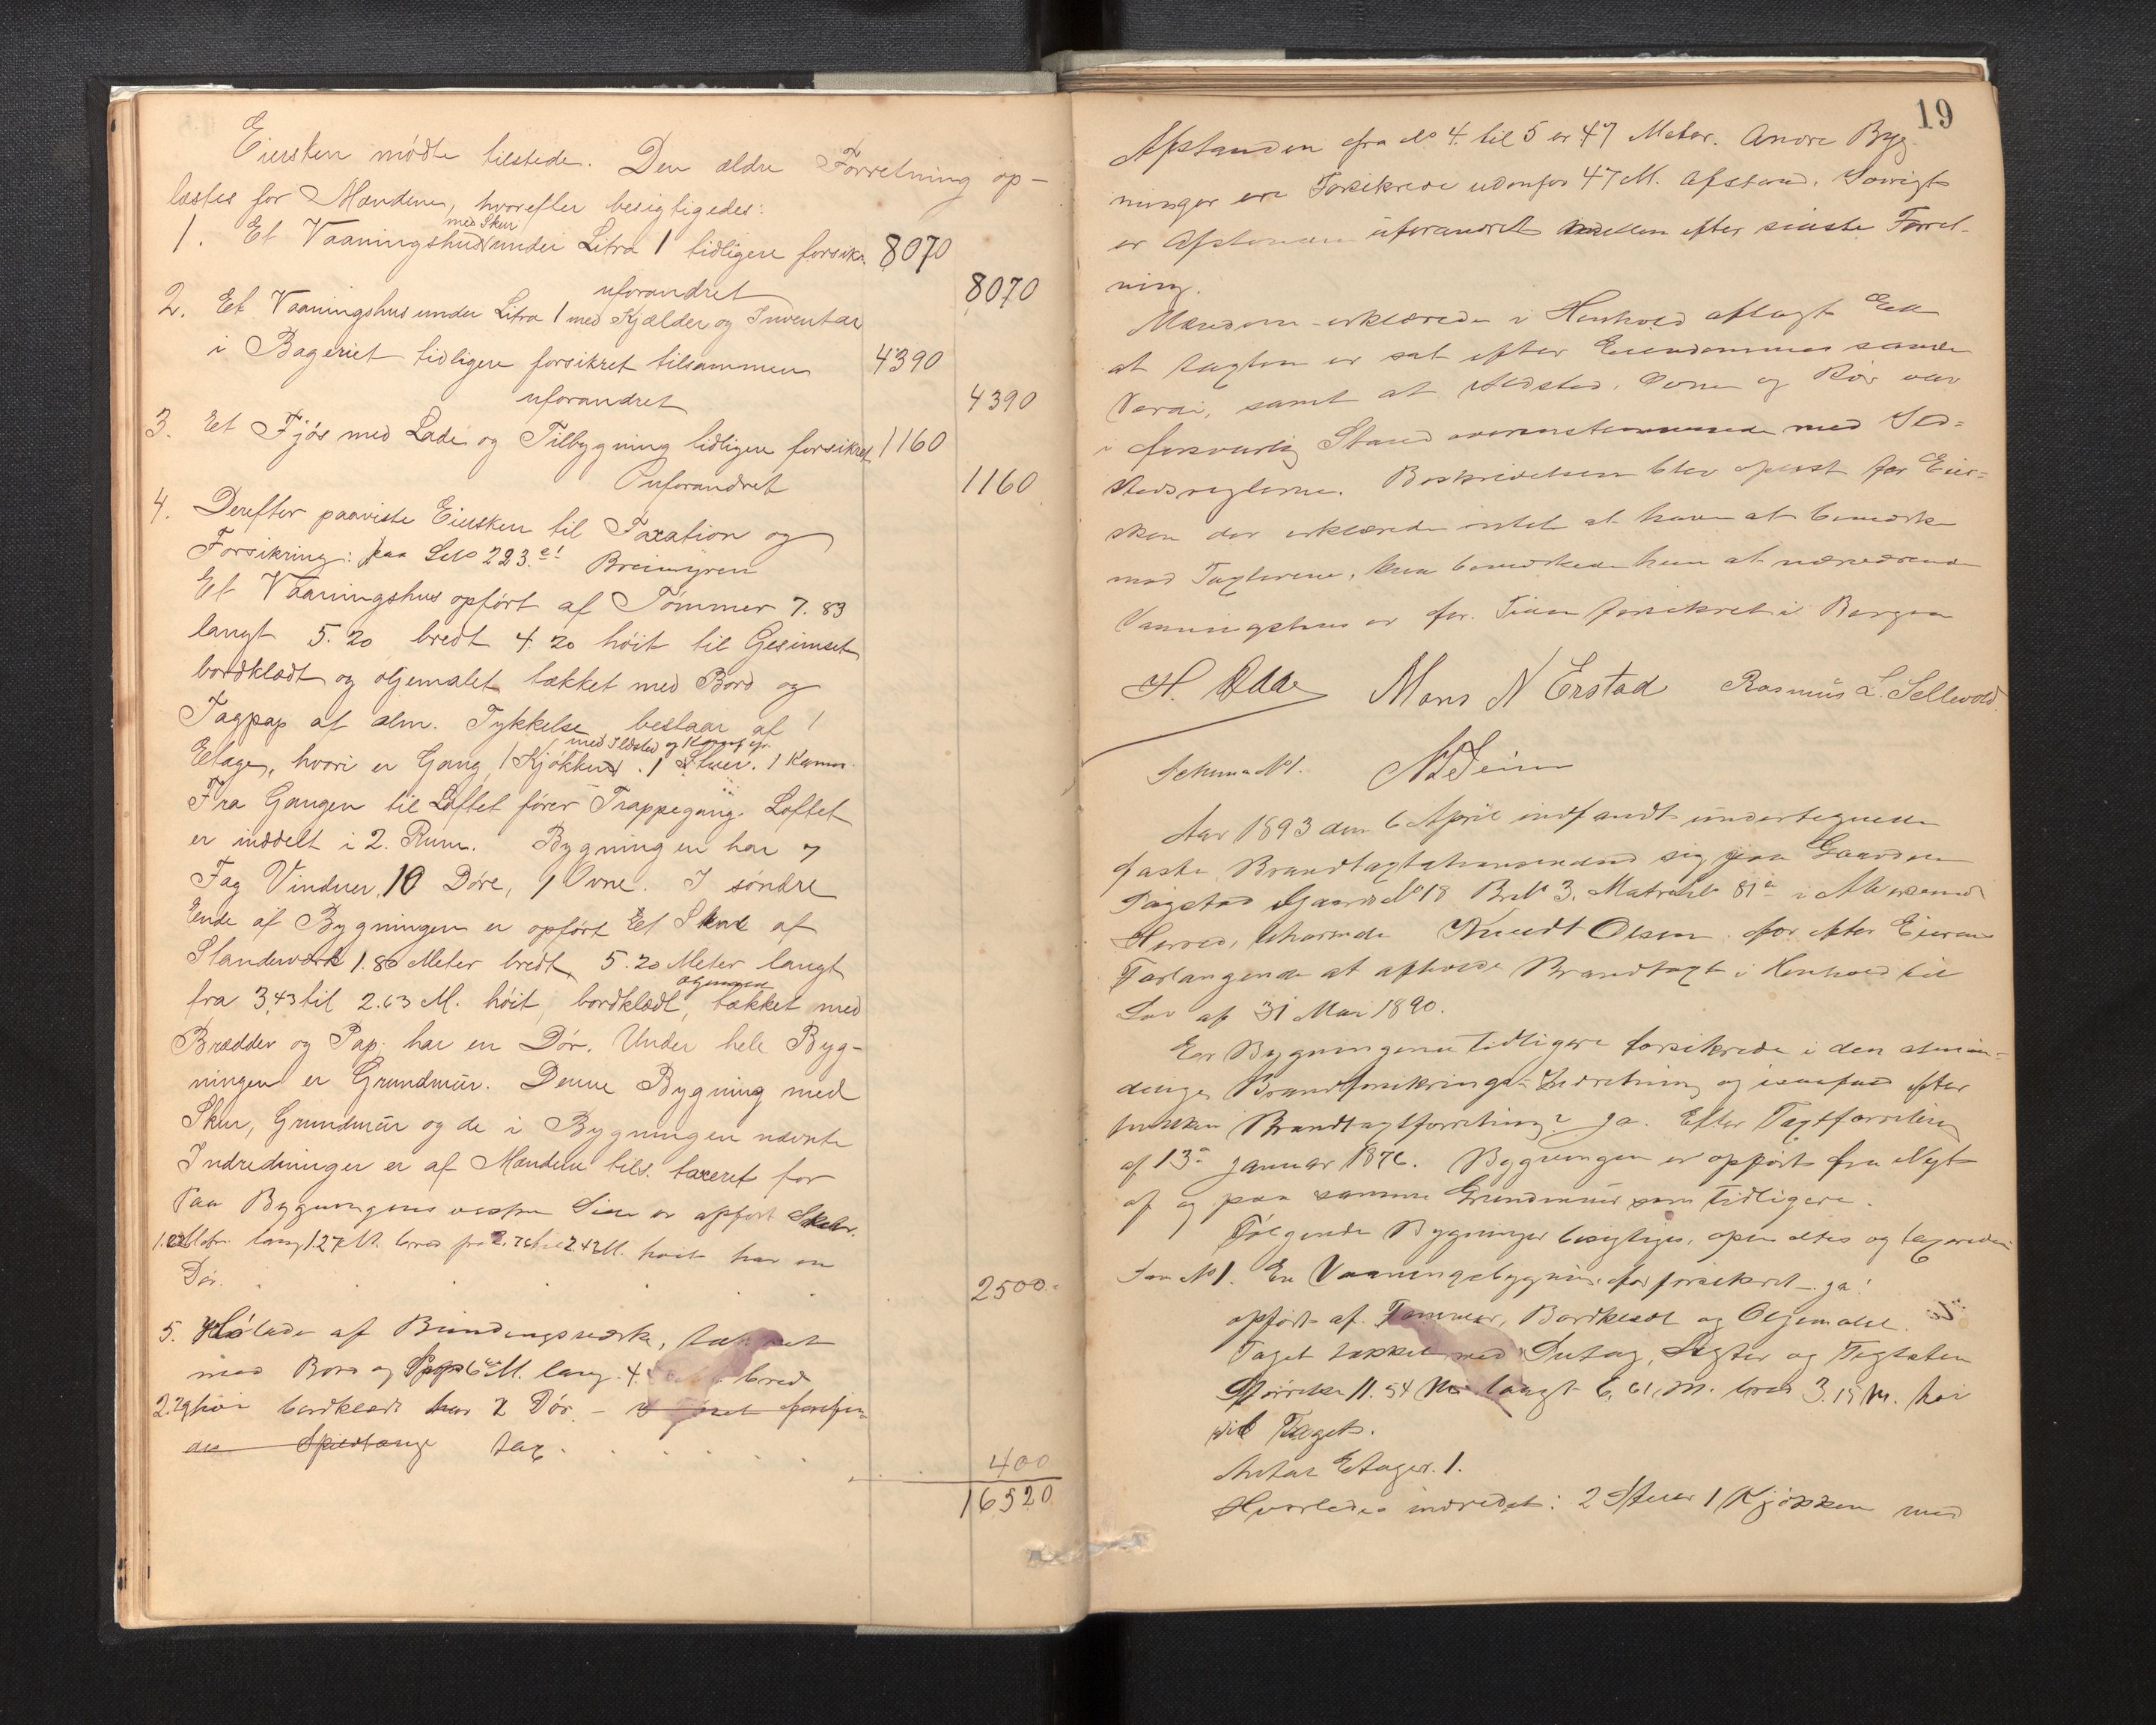 Eiersken mødte tilstede. Den ældre Forretning op-
læstes for Mændene, hvorefter besigtigedes:
1. Et Vaaningshus med Skur under Litra 1 tidligere forsikr. 8070
uforandret 8070
2. Et Vaaningshus under Litra 1 med Kjælder og Inventar
i Bageriet tidligere forsikret tilsammen 4390
uforandret 4390
3. Et Fjøs med Lade og Tilbygning tidligere forsikret 1160
uforandret 1160
4. Derefter paaviste Eiersken til Taxation og
Forsikring: paa LNo 223 Breimyren
Et Vaaningshus opført af Tømmer 7.83
langt 5.20 bredt 4.20 høit til Gesimset
bordklædt og oljemalet tækket med Bord og
Tagpap af alm. Tykkelse bestaar af 1
Etage, hvori er Gang, 1 Kjøkken med Ildsted og Komfyr. 1 Stuer. 1 Kamm.
Fra Gangen til Loftet fører Trappegang. Loftet
er inddelt i 2. Rum. Bygningen har 7
Fag Vinduer, 10 Døre, 1 Ovne. I søndre
Ende af Bygningen er opført Et Skur af
Standværk 1.80 Meter bredt, 5.20 Meter langt
fra 3.43 til 2.63 M. høit, bordklædt, tækket med
Brædder og Pap. har en Dør. Under hele Byg-
ningen er Grundmur. Denne Bygning med
Skur, Grundmur og de i Bygningen nævnte
Indredninger er af Mændene tils. taxeret for
Paa Bygningens vestre Side er opført Skur
lang 1.27 M. bred fra 2.76 til 2.42 M. høit har en
Dør. 2500
5. Høladе af Bindingsværk, tækket
med Bord og Pap 6 M. lang. 4. bred
2.29 høi bordklædt har 2 Dør. - forefin-
des tax. 400
16520
19
Afstanden fra No 4 til 5 er 47 Meter. Andre Byg-
ninger ere Forsikrede udenfor 47 M. Afstand. Forøvrigt
er Afstanden uforandret imellem efter sidste Forret-
ning.
Mændene erklærede i Henhold aflagt Eed
at Taxten er sat efter Eiendommens sande
Værdi, samt at Ildsted, Ovne og Rør var
i forsvarlig Stand overensstemmende med Ild-
stedsreglerne. Beskrivelsen blev oplæst for Eier-
sken der erklærede intet at have at bemærke
mod Taxterne, kun bemærkede hun at nærværende
Vaaningshus er for Tiden forsikret i Bergen
H. Mons N Erstad Rasmus L. Sellevold
Schema No 1.
Aar 1893 den 6 April indfandt undertegnede
faste Brandtaxtationsmænd sig paa Gaarden
Gaards No 18 Br.No 3. Matr. LNo 81a i
Herred, tilhørende Knudt Olsen for efter Eierens
Forlangende at afholde Brandtaxt i Henhold til
Lov af 31 Mai 1890.
Er Bygningerne tidligere forsikrede i den almin-
delige Brandforsikrings-Indretning og isaafald efter
hvilken Brandtaxtforretning? Ja. Efter Taxtforretning
af 13de Januar 1876. Bygningen er opført fra Nyt
af og paa samme Grundmur som tidligere.
Følgende Bygninger besigtiges, opmaaltes og taxeredes
Som No 1. En Vaaningsbygning før forsikret - ja!
opført af Tømmer, Bordklædt og Oljemalet.
Taget tækket med Sutag, Lægter og Tegsten
Størrelse 11.54 M. langt 6.61 M. bred 3.15 M. høi
til Taget.
Antal Etager. 1.
Hvorledes indredet: 2 Stuer 1 Kjøkken med